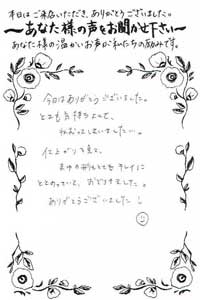 本日はご来店いただき、ありがとうございました。
〜あなた様の声をお聞かせ下さい〜
あなた様の温かいお声が私たちの励みです。
今日はありがとうございました。
とても気持ちよくて、
ねむってしまいました…。
仕上がりを見て、
まゆの形もとてもキレイに
ととのっていて、おどろきました。
ありがとうございました！